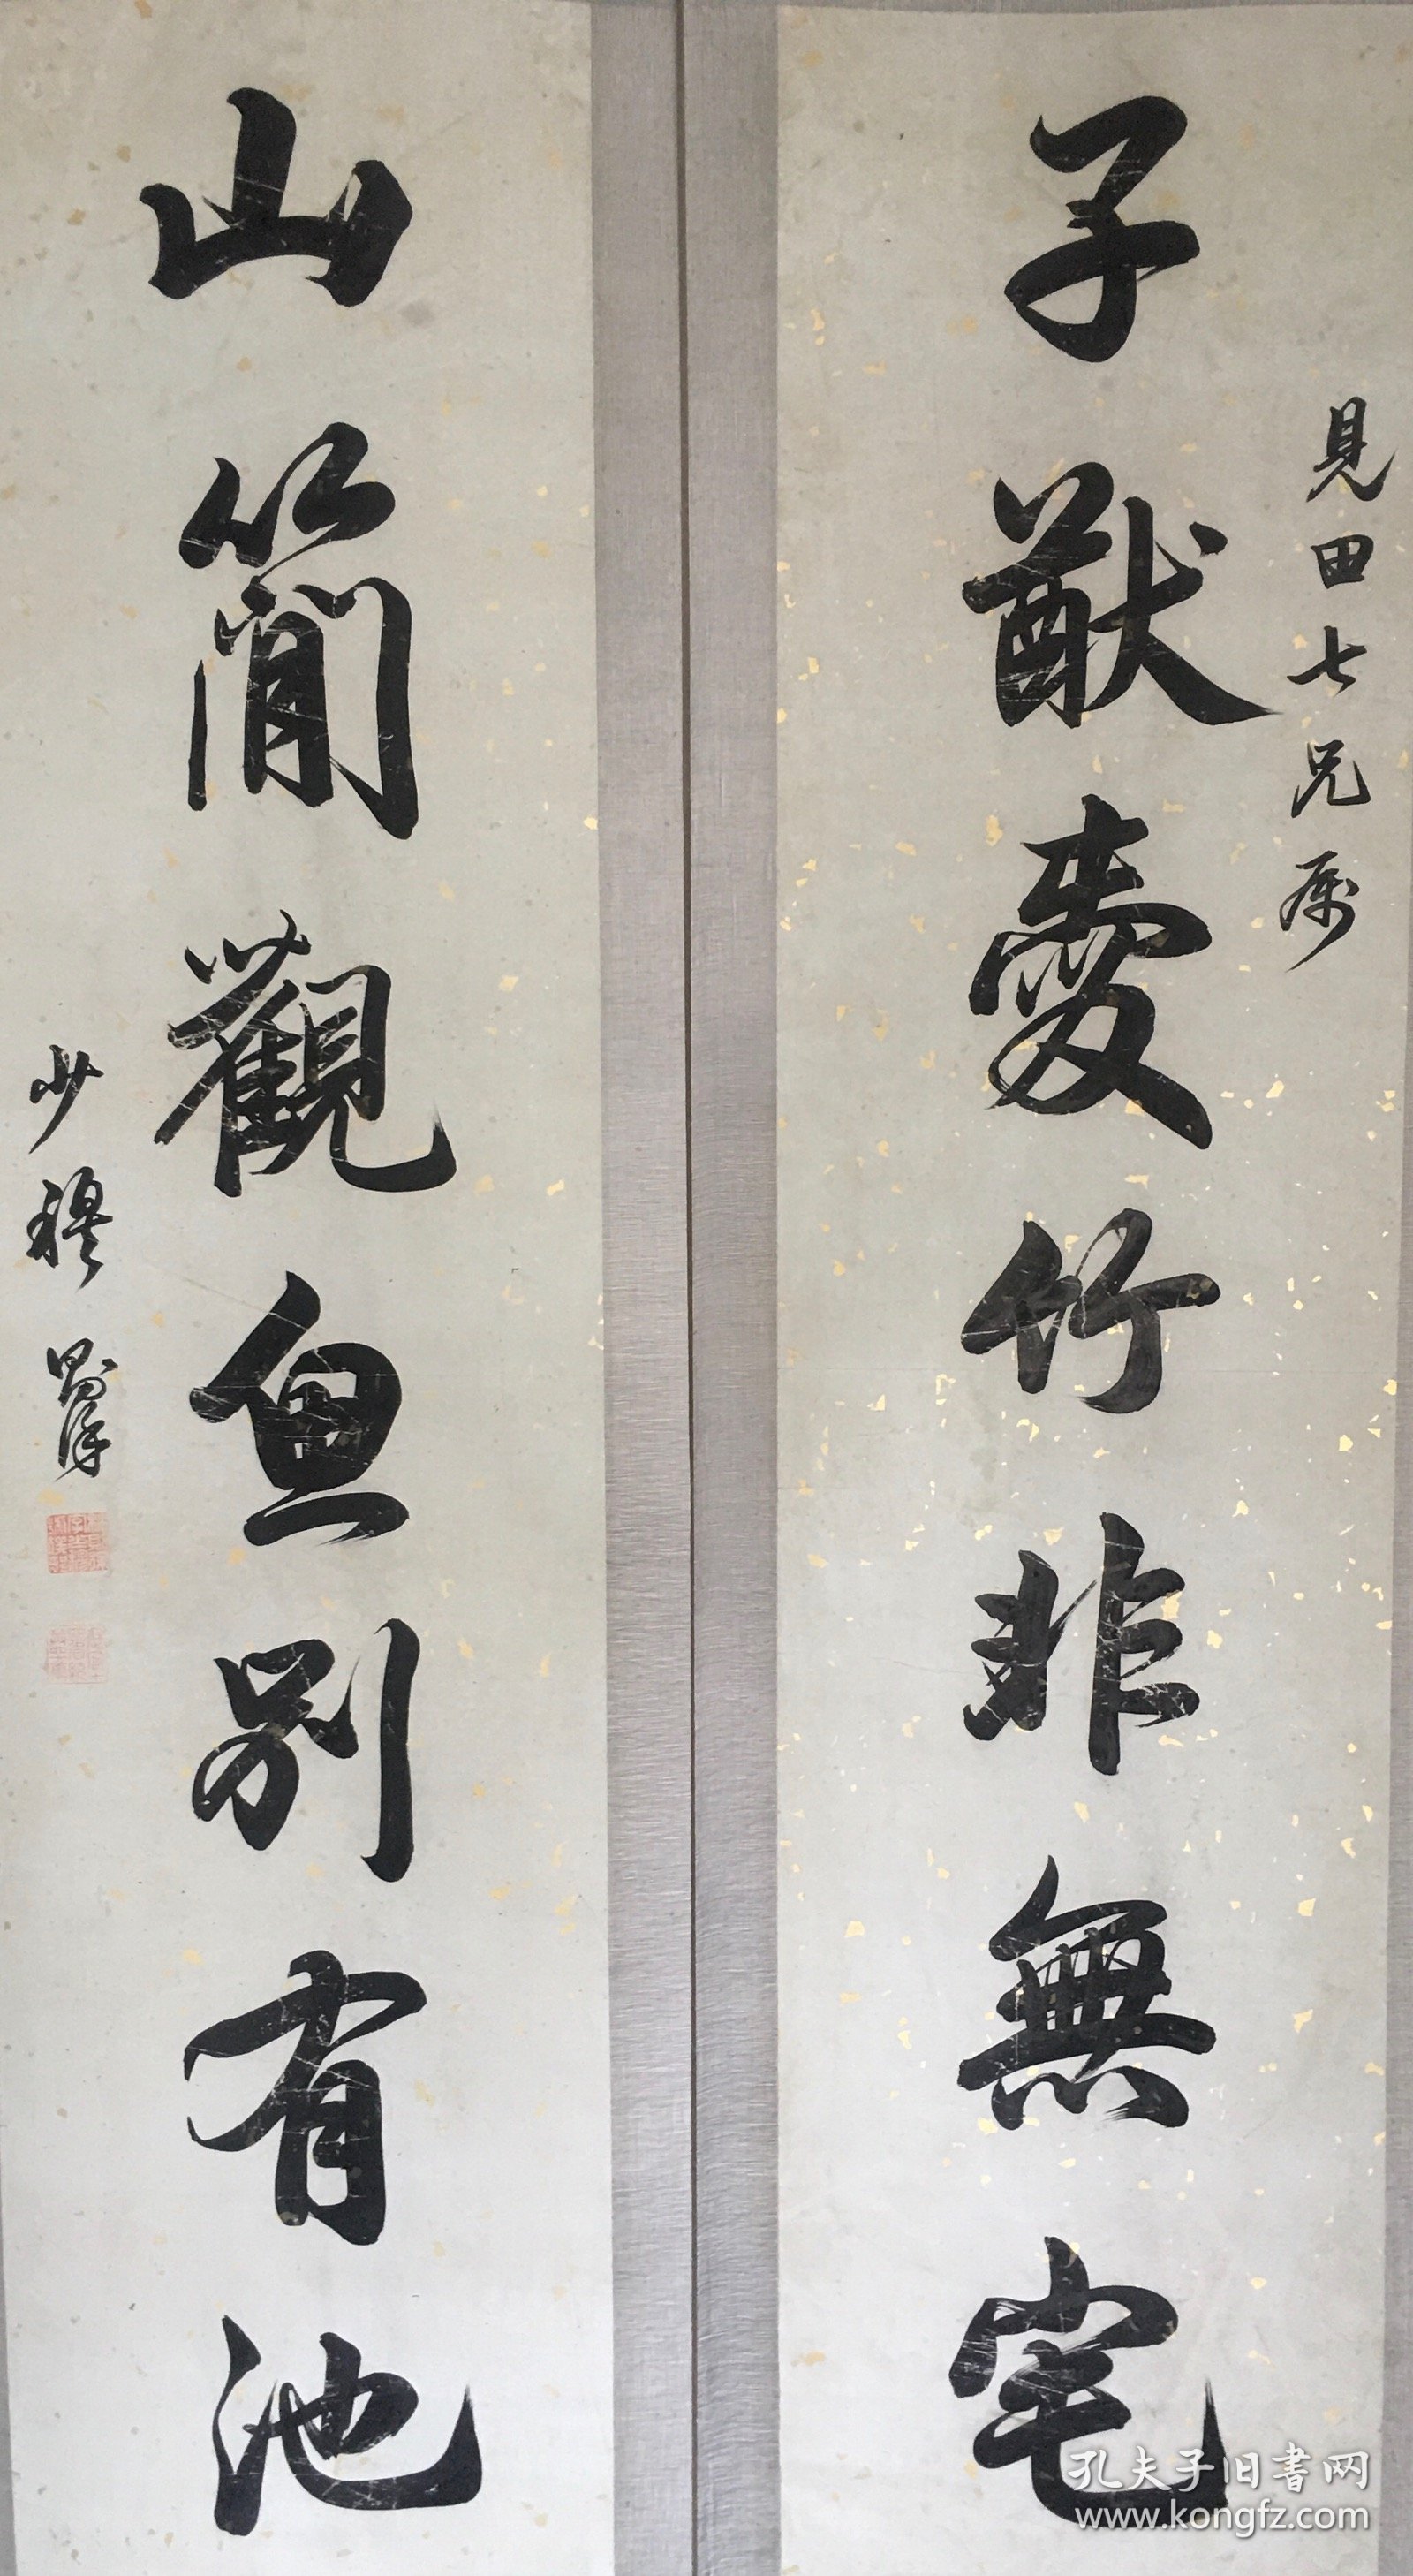 見田七兄属
子猷愛竹非無宅
山簡觀魚別有池
少穆
孔夫子旧書网
www.kongfz.com